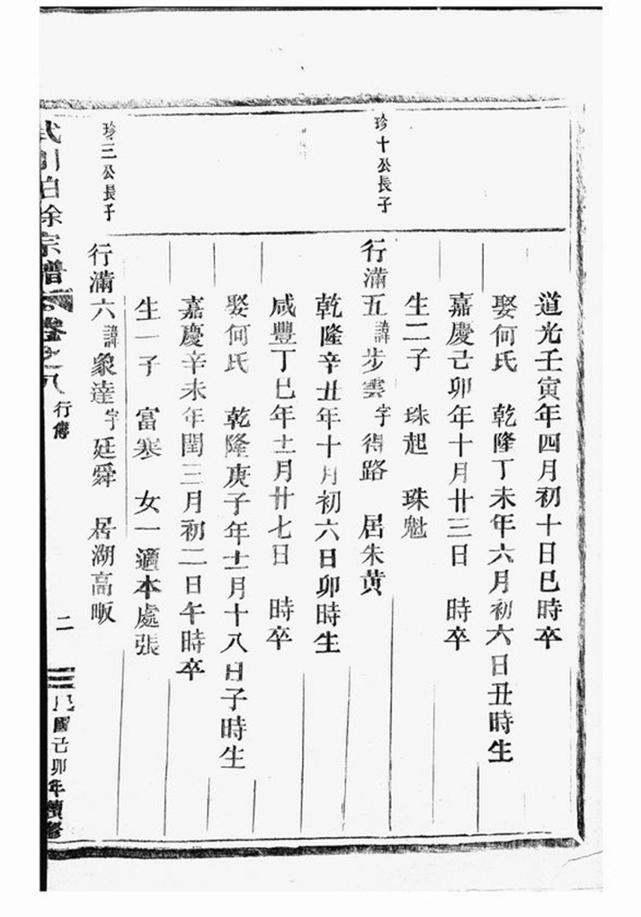 道光壬寅年四月初十日巳時卒
娶何氏 乾隆丁未年六月初六日丑時生
嘉慶己卯年十月廿三日 時卒
生二子 珠起 珠魁
珍十公長子
行滿五 諱步雲 字得路 居朱黄
乾隆辛丑年十月初六日卯時生
咸豐丁巳年十二月廿七日 時卒
娶何氏 乾隆庚子年十二月十八日子時生
嘉慶辛未年閏三月初二日午時卒
生一子 富寒 女一適本處張
珍三公長子
行滿六 諱象達 字廷舜 居湖高畈
徐宗譜 卷之八 行傳 二 民國己卯年續修